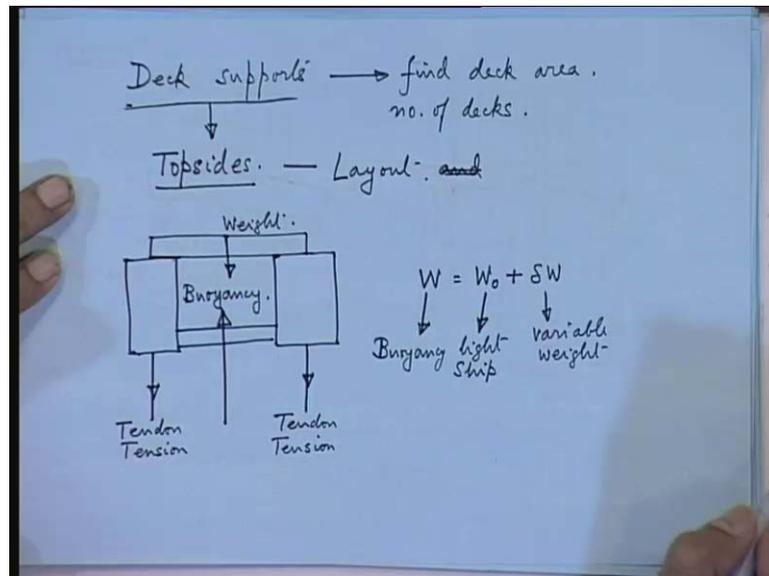 Deck supports → find deck area.
no. of decks.
Topsides. — Layout.
Weight.
Buoyancy.
W = W₀ + δW
Buoyancy
light ship
variable weight
Tendon Tension
Tendon Tension